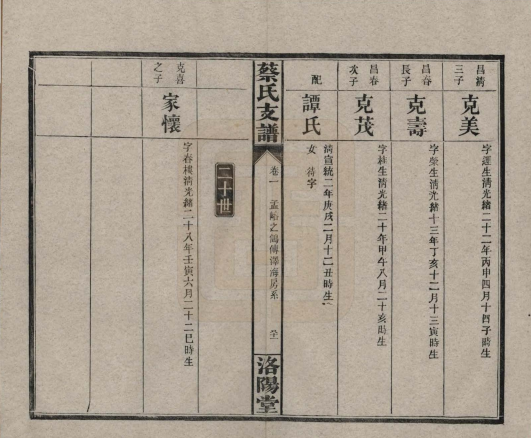 昌綪
三子
克美
字運生淸光緒二十二年丙申四月十四子時生
昌春
長子
克壽
字榮生淸光緒十三年丁亥十二月十三寅時生
昌春
次子
克茂
字桂生淸光緒二十年甲午八月二十亥時生
配
譚氏
淸宣統二年庚戌二月十二丑時生
女 待字
蔡氏支譜
卷一 孟 之 傳澤海房系
洛陽堂
二十世
克喜
之子
家懷
字春樸淸光緒二十八年壬寅六月二十二巳時生